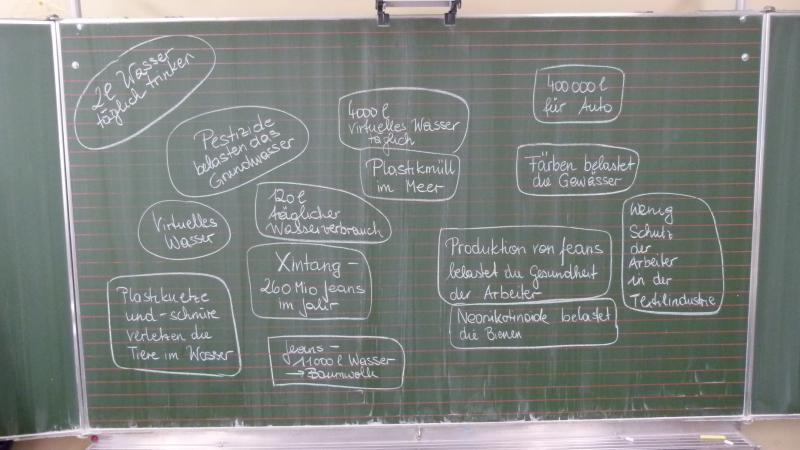 2l Wasser
täglich trinken
Pestizide
belasten das
Grundwasser
4000 l
virtuelles Wasser
täglich
400 000 l
für Auto
Plastikmüll
im Meer
Färben belastet
die Gewässer
Virtuelles
Wasser
120 l
täglicher
Wasserverbrauch
Wenig
Schutz
der
Arbeiter
in der
Textilindustrie
Xintang –
260 Mio Jeans
im Jahr
Produktion von Jeans
belastet die Gesundheit
der Arbeiter
Plastiknetze
und -schnüre
verletzen die
Tiere im Wasser
Neonikotinoide belastet
die Bienen
Jeans –
11000 l Wasser
→ Baumwolle